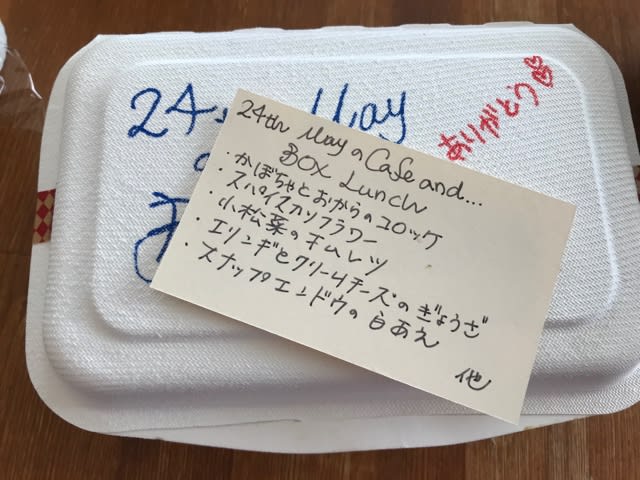 24th May
ありがとう
24th May の Cafe and...
BOX Lunch
・かぼちゃとおからのコロッケ
・スパイスカリフラワー
・小松菜のオムレツ
・エリンギとクリームチーズのぎょうざ
・スナップエンドウの白あえ
他